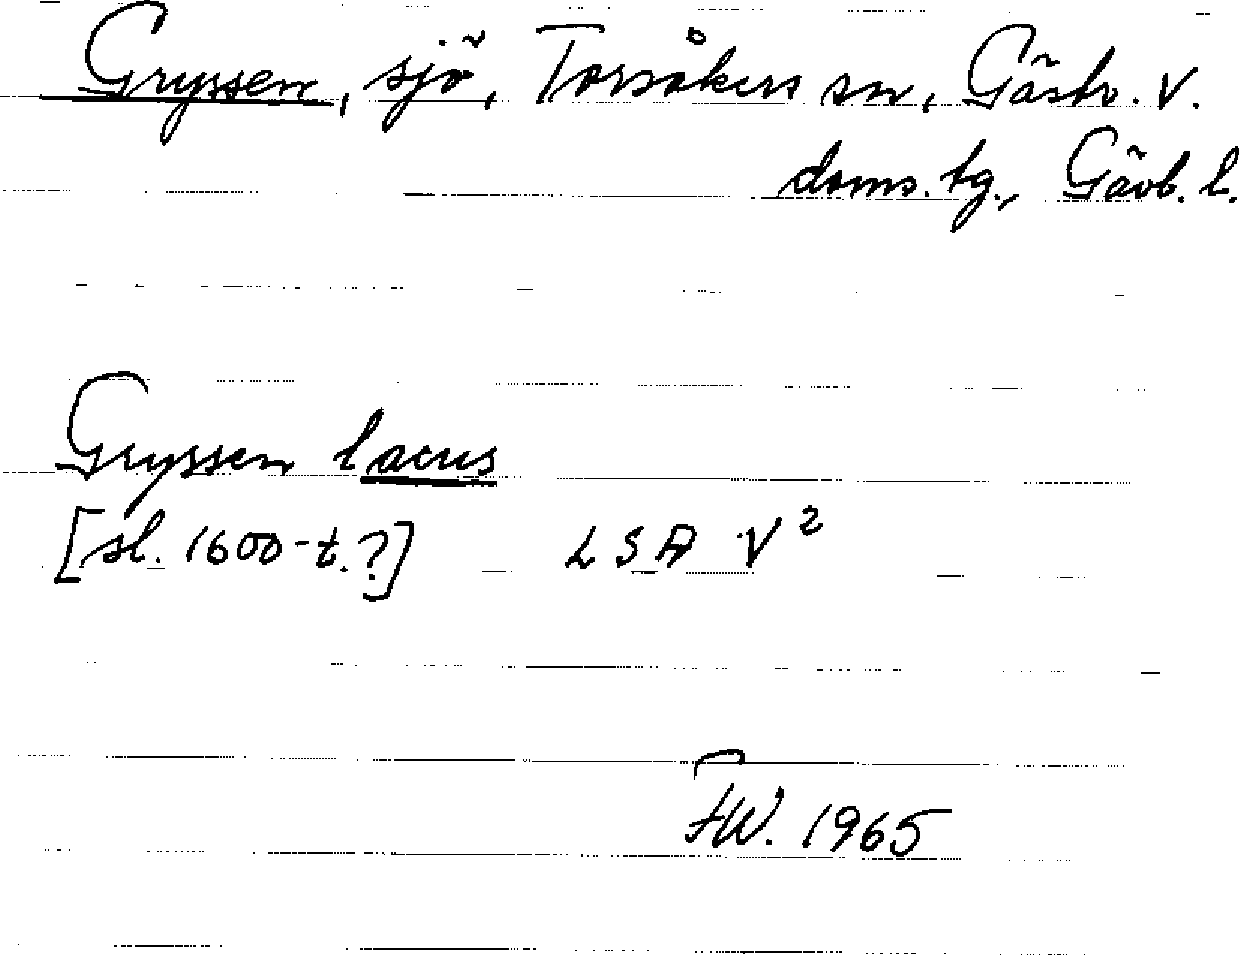 Gryssen, sjö, Torsåkers sn, Gästr. V.
doms. tg., Gävb. l.
Gryssen lacus
[sl. 1600-t.?] LSA V²
FW. 1965